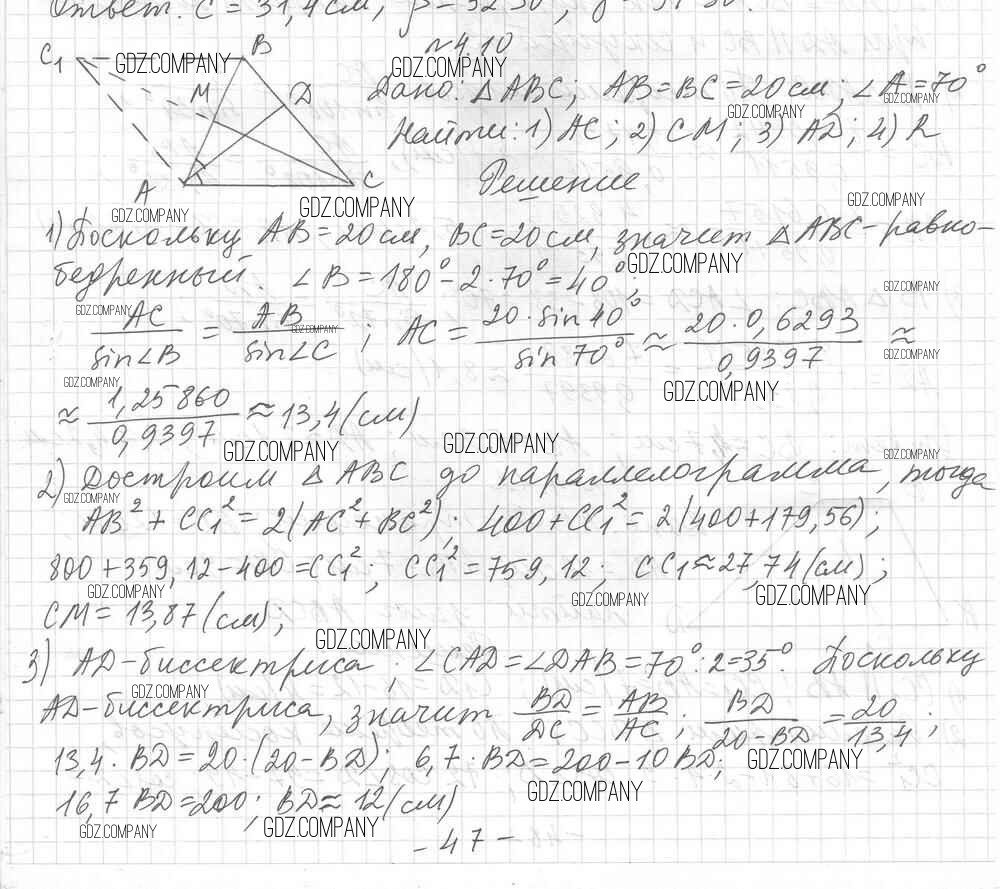 Ответ. C = 31,4 см,
№4.10
Дано: △ABC; AB=BC=20см; ∠A=70°
Найти: 1) AC; 2) CM; 3) AD; 4) R
Решение
C₁ B M D A C
1) Поскольку AB=20см, BC=20см, значит △ABC-равно-
бедренный. ∠B=180°-2·70°=40°;
AC/sin∠B = AB/sin∠C; AC = 20·sin40°/sin70° ≈ 20·0,6293/0,9397 ≈
≈ 1,25860/0,9397 ≈ 13,4(см)
2) Достроим △ABC до параллелограмма, тогда
AB²+CC₁²=2(AC²+BC²); 400+CC₁²=2(400+179,56);
800+359,12-400=CC₁²; CC₁²=759,12; CC₁≈27,74(см);
CM=13,87(см);
3) AD-биссектриса; ∠CAD=∠DAB=70°:2=35°. Поскольку
AD-биссектриса, значит BD/DC = AB/AC; BD/20-BD = 20/13,4;
13,4·BD=20·(20-BD); 6,7·BD=200-10BD;
16,7 BD=200; BD≈12(см)
-47-
GDZ.COMPANY